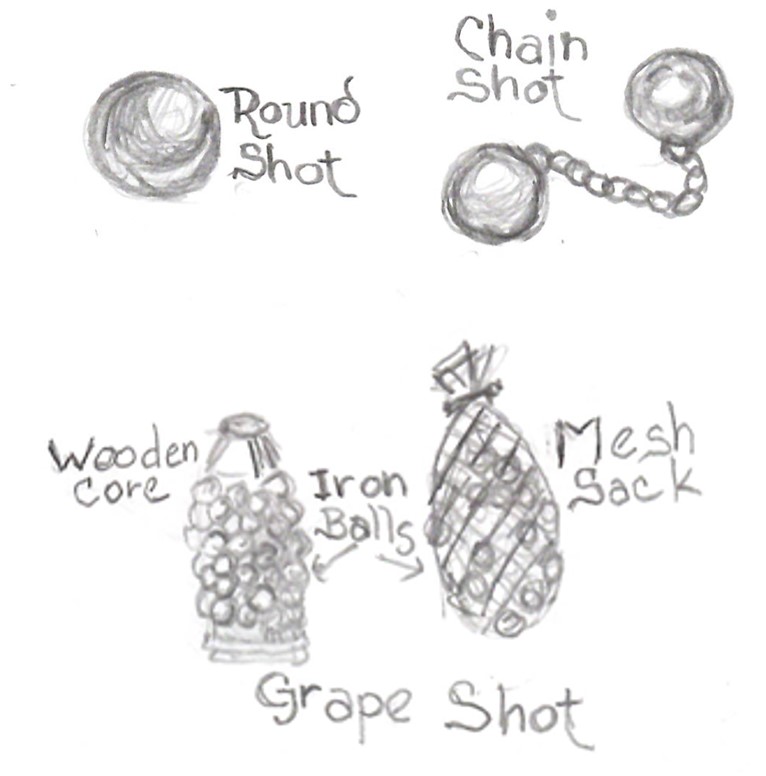 Round
Shot
Chain
Shot
Wooden
Core
Iron
Balls
Mesh
Sack
Grape Shot